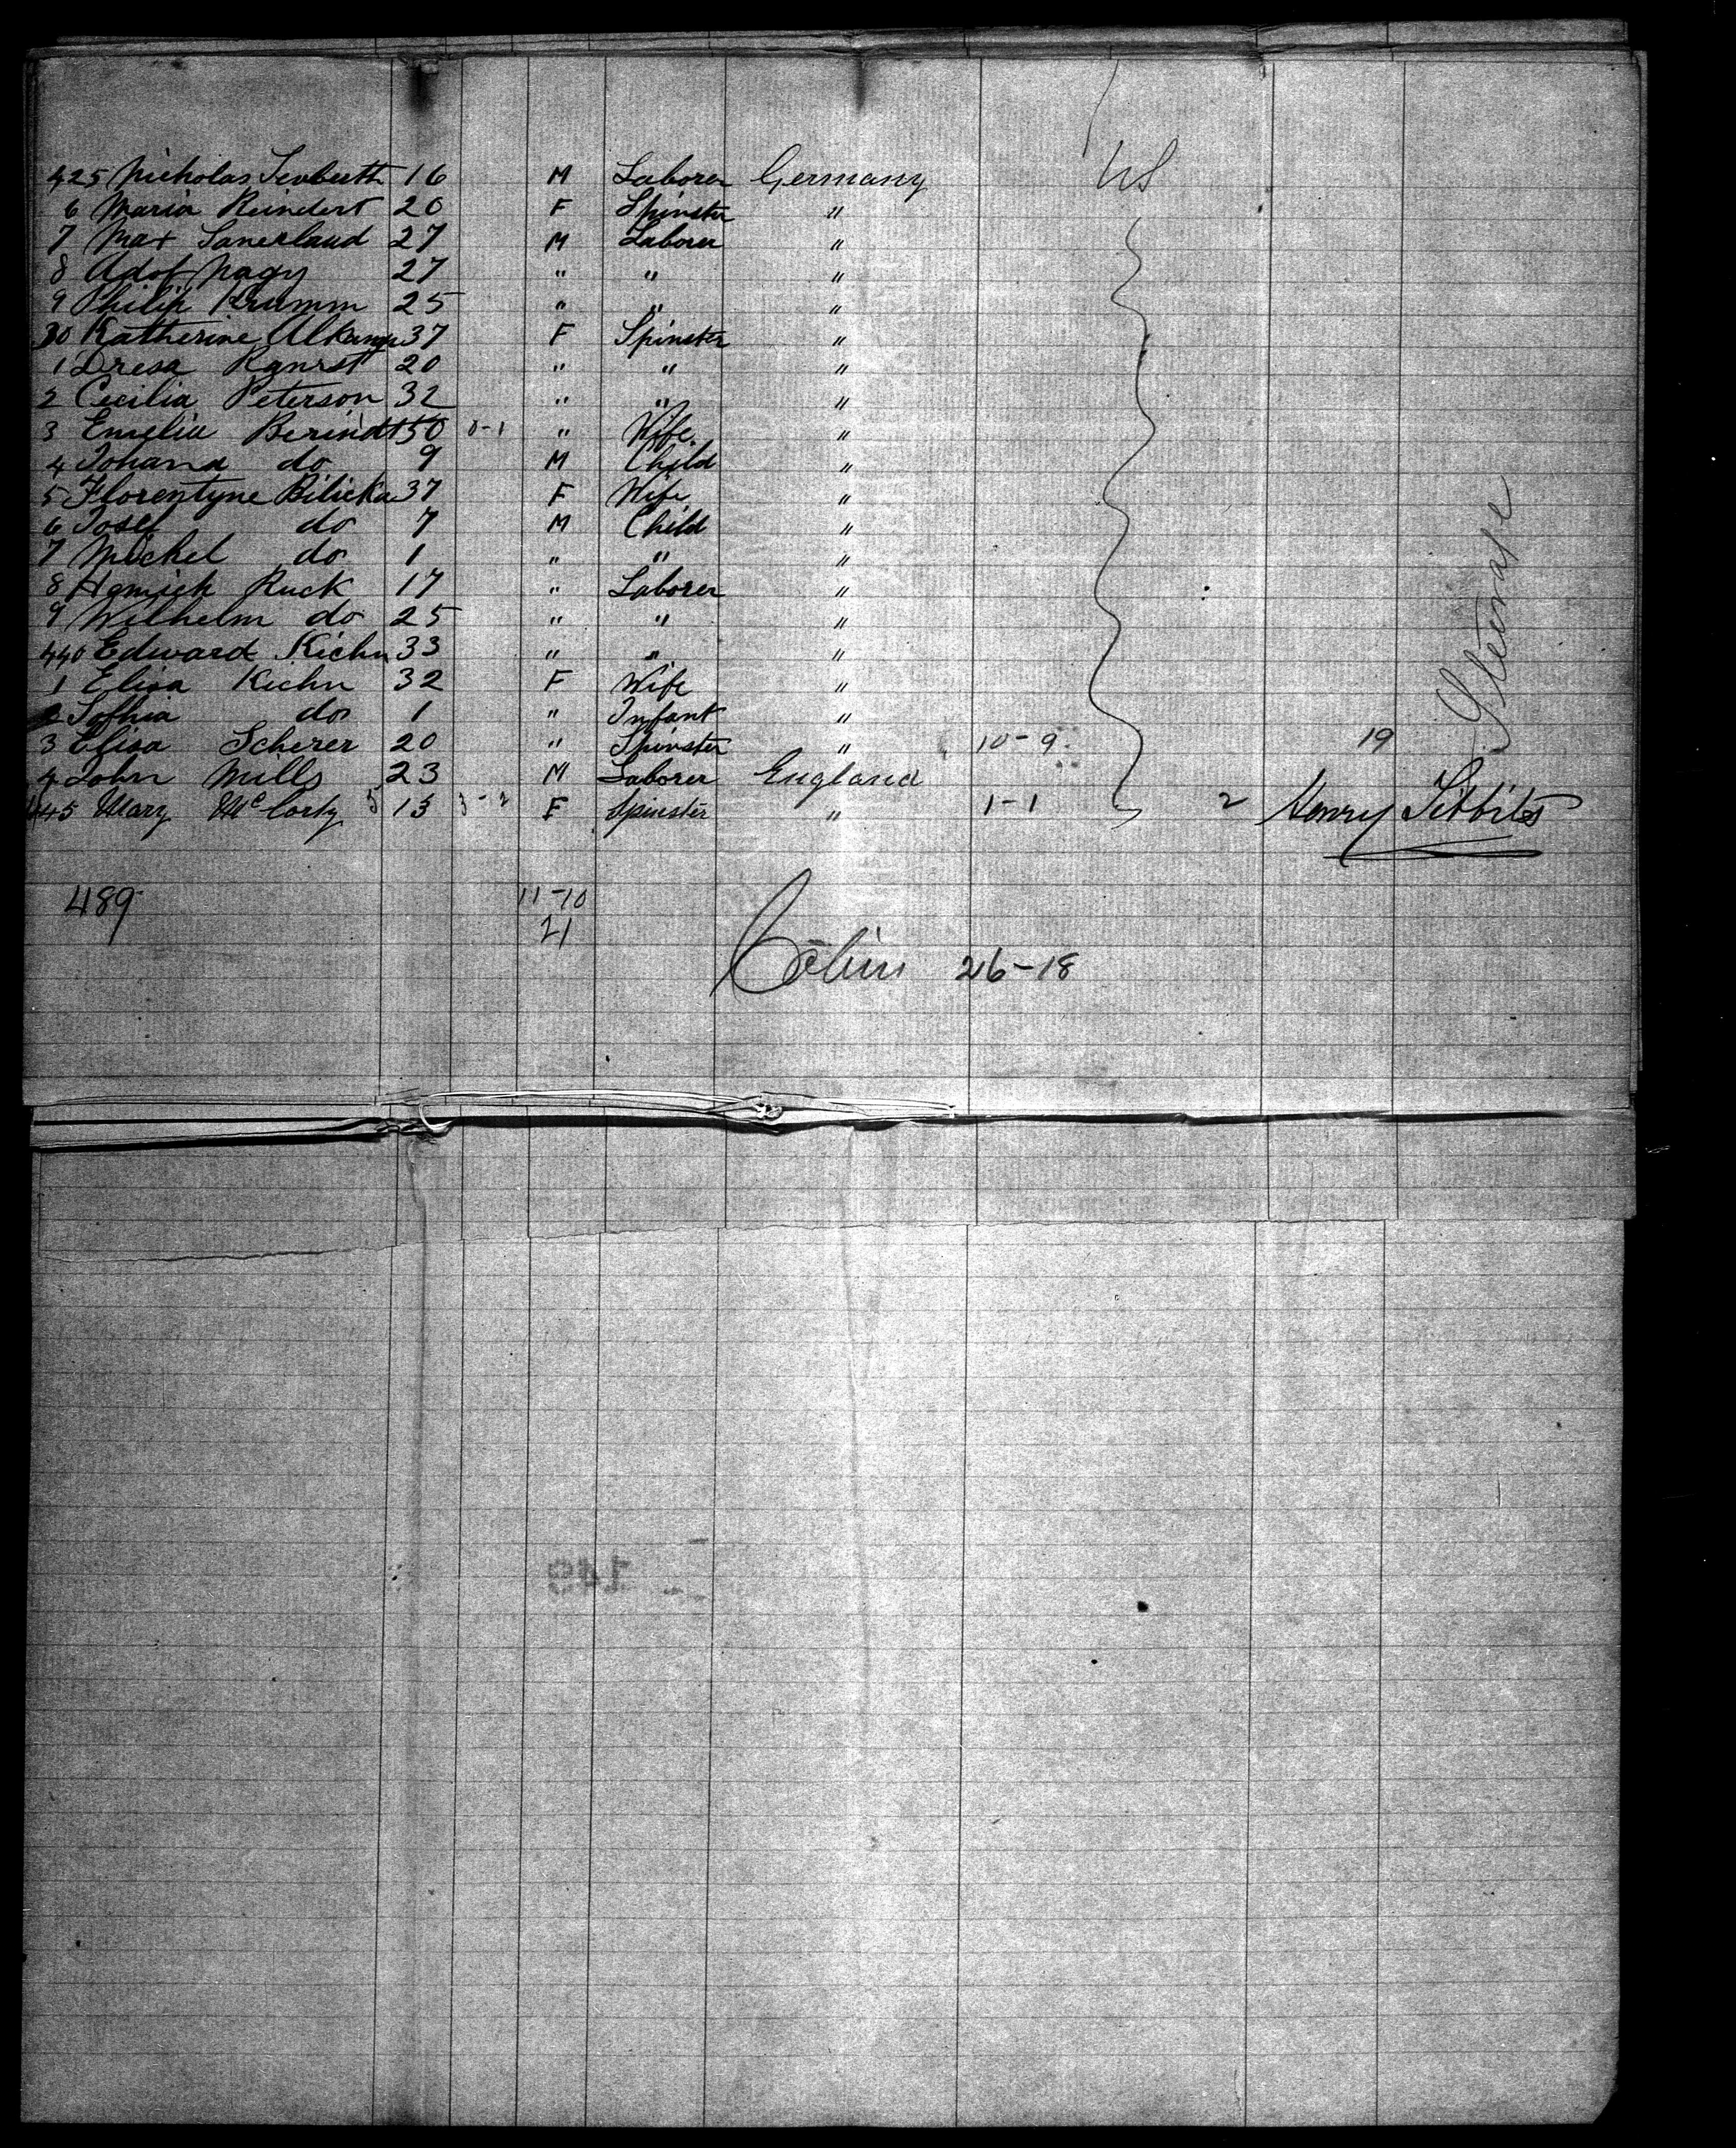 425 Nicholas Seuberth 16 M Laborer Germany US
6 Maria Reindert 20 F Spinster "
7 Max Sanerland 27 M Laborer "
8 Adof Nagy 27 " " "
9 Philip Krumm 25 " " "
30 Katherine 37 F Spinster "
1 Dresa 20 " " "
2 Cecilia Peterson 32 " " "
3 Emelia Berindt 50 0-1 " Wife "
4 Johana do 9 M Child "
5 Florentyne Bilicka 37 F Wife "
6 Josef do 7 M Child "
7 Mickel do 1 " " "
8 Ruck 17 " Laborer "
9 Wilhelm do 25 " " "
440 Edward Kiehn 33 " " "
1 Elisa Kiehn 32 F Wife "
2 Sophia do 1 " Infant "
3 Elisa Scherer 20 " Spinster " 10-9 19
4 John Mills 23 M Laborer England
445 Mary 5 13 3-2 F Spinster " 1-1 2 Henry Tibbits
Steerage
489 11-10
21
Cabin 26-18